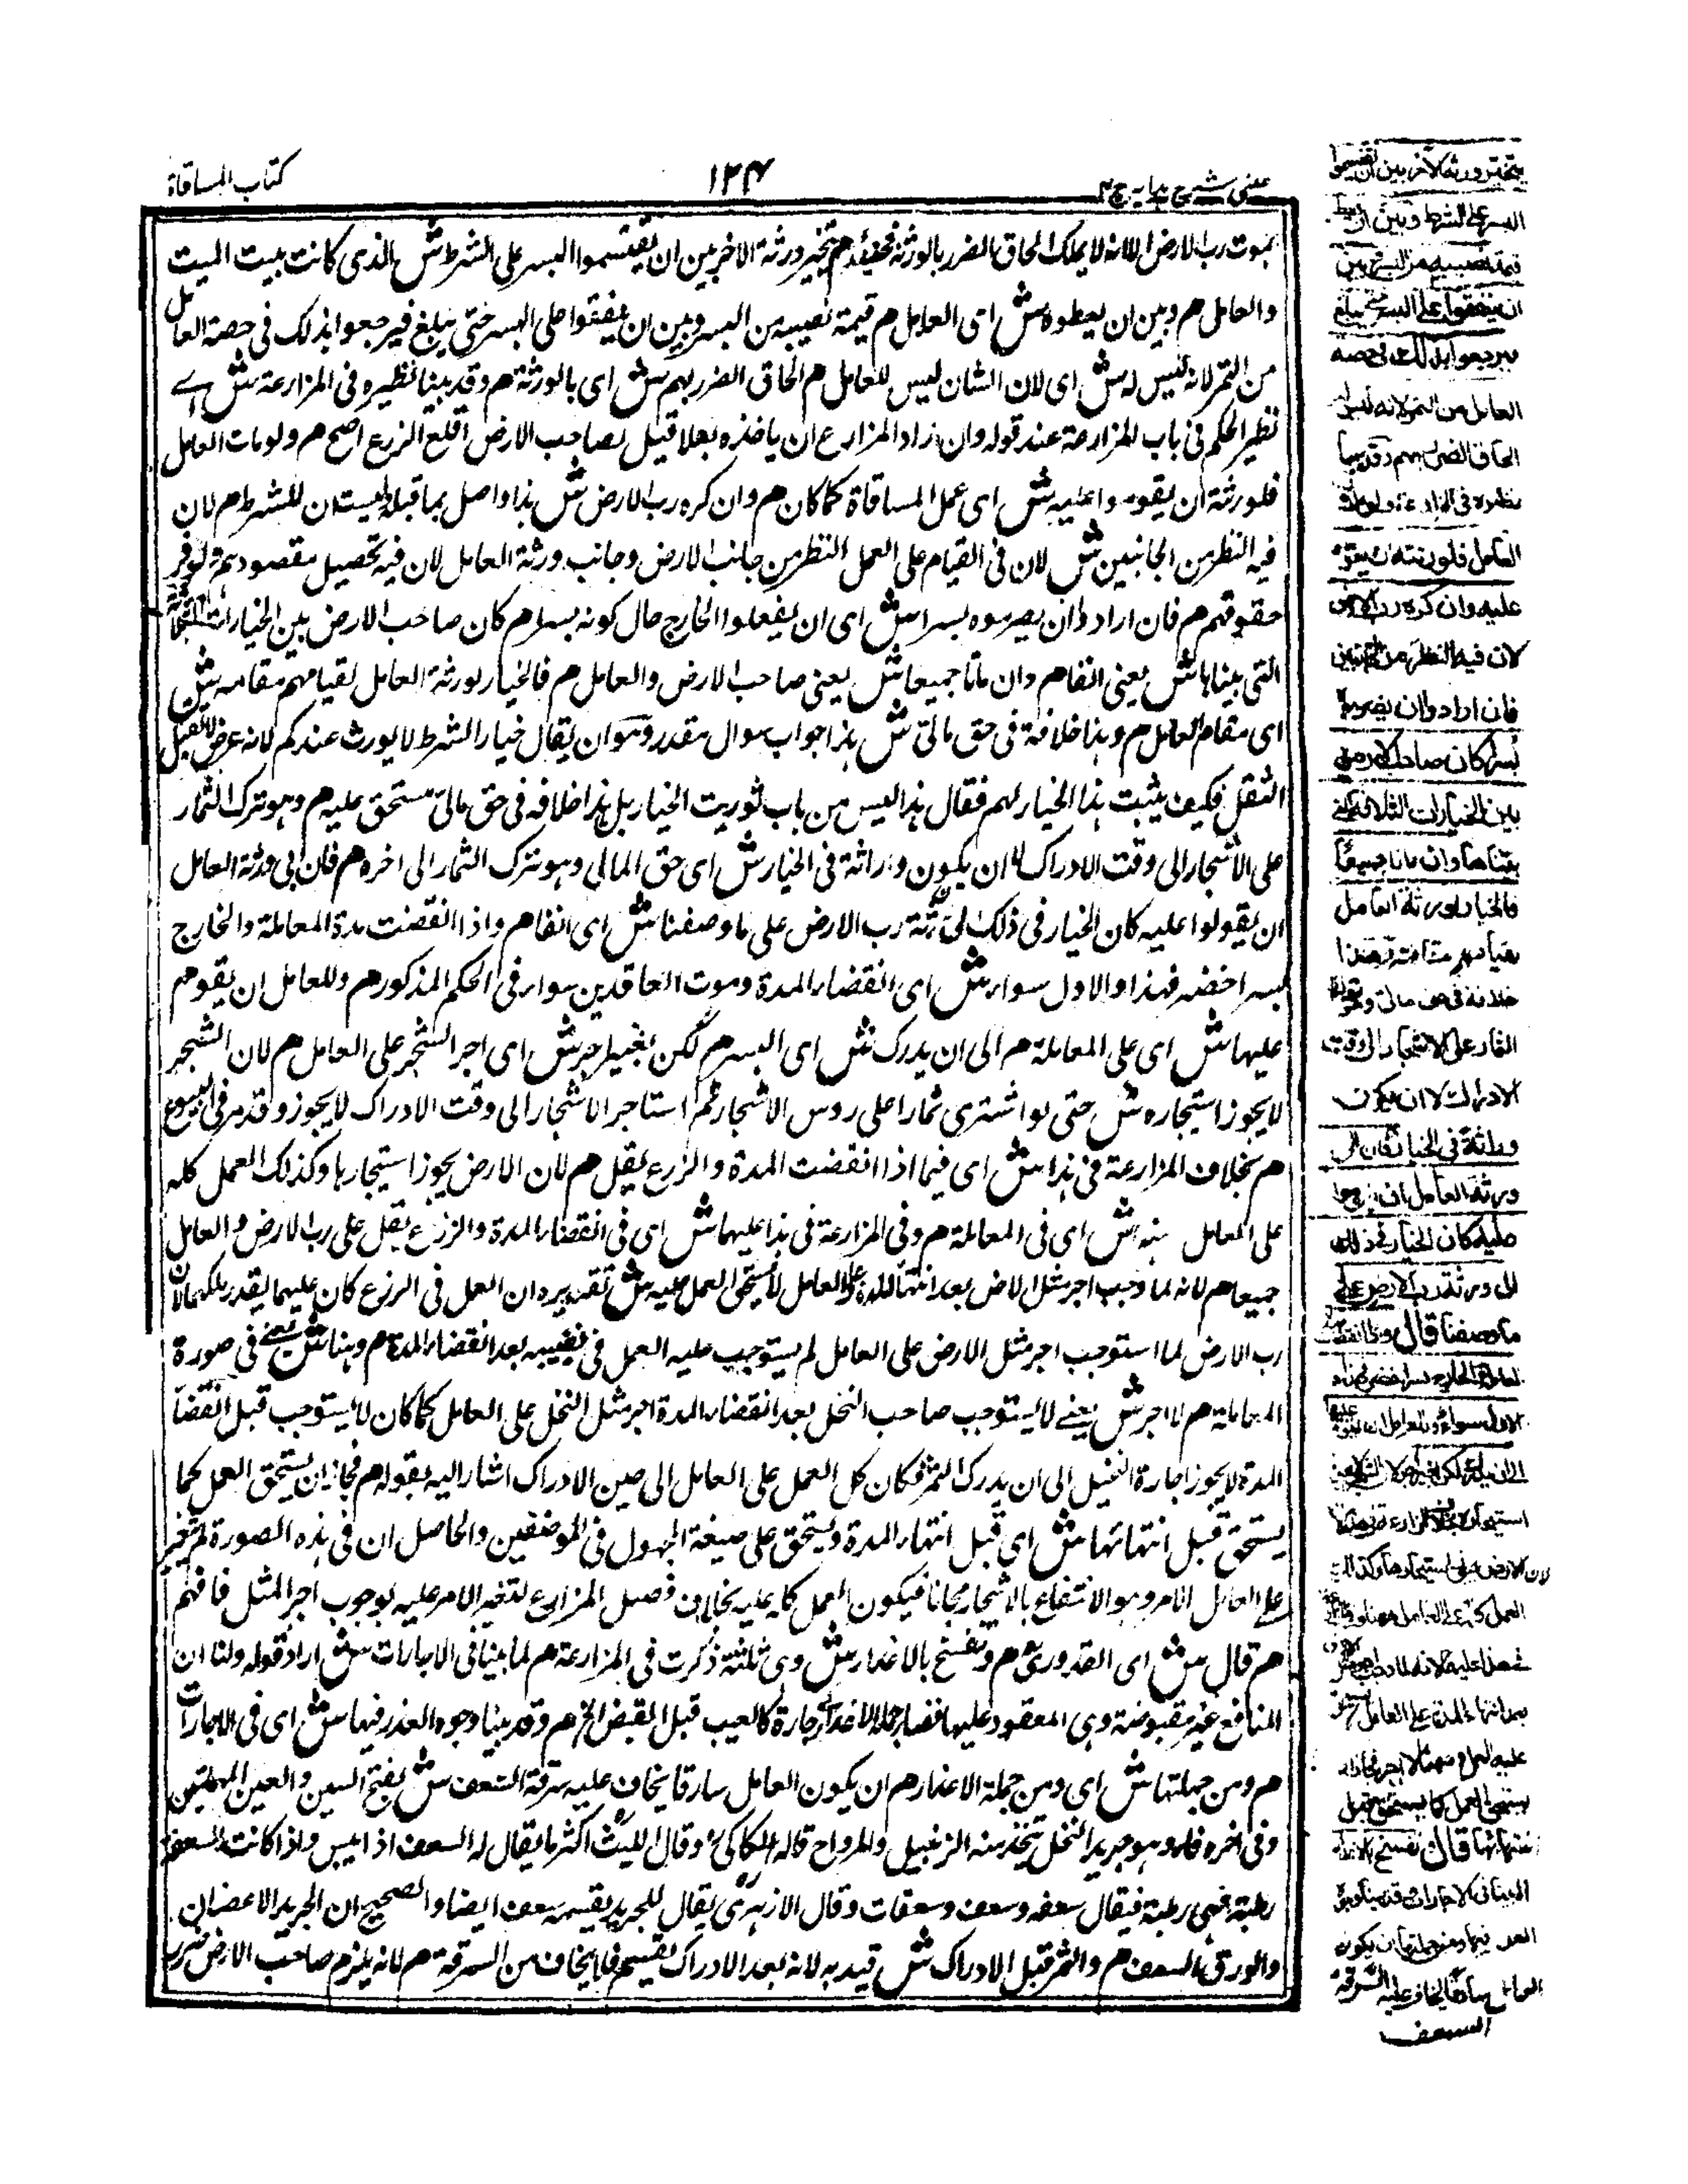 عینی شرح هدایه ج ۴
۱۲۴
کتاب المساقاة
بموت رب الارض الا انه لا یملک الحاق الضرر بالورثة فحینئذ هم یتخیر ورثة الاخر بین ان یقتسموا البسر علی الشرط ش الذی کانت بیت المیت
والعامل هم و بین ان یعطوه ش ای العامل هم قیمة نصیبه من البسر و بین ان ینفقوا علی البسر حتی یبلغ فیرجعوا بذلک فی حصة العامل
من الثمر لانه لیس له ش ای لان الشان لیس للعامل هم الحاق الضرر بهم ش ای بالورثة هم و قد بینا نظیره فی المزارعة ش ای
نظیر الحکم فی باب المزارعة عند قوله وان اراد المزارع ان یاخذه بقلا قیل لصاحب الارض اقلع الزرع اصح هم ولو مات العامل
فلورثته ان یقوموا علیه ش ای عمل المساقاة کما کان هم وان کره رب الارض ش هذا واصل بما قبله لیست ان للشرط هم لان
فیه النظر من الجانبین ش لان فی القیام علی العمل النظر من جانب الارض وجانب ورثة العامل لان فیه تحصیل مقصودهم و توفر
حقوقهم هم فان ارادوا ان یصرموه بسرا ش ای ان یفعلوا الخارج حال کونه بسرا هم کان صاحب الارض بین الخیارات الثلثة
التی بیناها ش یعنی انفا هم وان ماتا جمیعا ش یعنی صاحب الارض والعامل هم فالخیار لورثة العامل لقیامهم مقامه ش
ای مقام العامل هم وهذا خلافة فی حق مالی ش هذا جواب سوال مقدر وهو ان یقال خیار الشرط لا یورث عندکم لانه عرض لا یقبل
النقل فکیف یثبت هذا الخیار لهم فقال هذا لیس من باب توریث الخیار بل هذا خلافه فی حق مالی مستحق علیه هم وهو ترک الثمار
علی الاشجار الی وقت الادراک لا ان یکون وراثة فی الخیار ش ای حق المالی وهو ترک الثمار الی اخره هم فان ابی ورثة العامل
ان یقولوا علیه کان الخیار فی ذلک لورثة رب الارض علی ما وصفنا ش ای انفا هم واذا انقضت مدة المعاملة والخارج
بسر اخضر فهذا والاول سواء ش ای انقضاء المدة وموت العاقدین سواء فی الحکم المذکور هم وللعامل ان یقوم هم
علیها ش ای علی المعاملة هم الی ان یدرک ش ای البسر هم لکن بغیر اجر ش ای اجر الشجر علی العامل هم لان الشجر
لا یجوز استیجاره ش حتی لو اشتری ثمارا علی روس الاشجار ثم استاجر الاشجار الی وقت الادراک لا یجوز وقد مر فی البیوع
هم بخلاف المزارعة فی هذا ش ای فیما اذا انقضت المدة والزرع بقل هم لان الارض یجوز استیجارها وکذلک العمل کله
علی العامل هنا ش ای فی المعاملة هم وفی المزارعة فی هذا علیهما ش ای فی انقضاء المدة والزرع بقل علی رب الارض والعامل
جمیعا هم لانه لما وجب اجر مثل الارض بعد انتهاء المدة علی العامل لا یستحق العمل علیه ش تقدیره ان العمل فی الزرع کان علیهما بقدر ملکهما لان
رب الارض لما استوجب اجر مثل الارض علی العامل لم یستوجب علیه العمل فی نصیبه بعد انقضاء المدة هم وهنا ش یعنی فی صورة
المعاملة هم لا اجر ش یعنی لا یستوجب صاحب النخل بعد انقضاء المدة اجر مثل النخل علی العامل کما کان لا یستوجب قبل انقضاء
المدة لا یجوز اجارة النخیل الی ان یدرک الثمر فکان کل العمل علی العامل الی حین الادراک اشار الیه بقوله هم فجاز ان یستحق العمل کما
یستحق قبل انتهائها ش ای قبل انتهاء المدة ویستحق علی صیغة المجهول فی الموضعین والحاصل ان فی هذه الصورة لم یتغیر
علی العامل الامر وهو الانتفاع بالاشجار مجانا فیکون العمل کله علیه بخلاف فصل المزارع لتغیر الامر علیه بوجوب اجر المثل فافهم
هم قال ش ای القدوری هم وتفسخ بالاعذار ش وهی ثلثة ذکرت فی المزارعة هم لما بینا فی الاجارات ش اراد قوله ولنا ان
المنافع غیر مقبوضة وهی المعقود علیها فصار جملة الاعذار فی الاجارة کالعیب قبل القبض الخ هم وقد بینا وجوه العذر فیها ش ای فی الاجارات
هم ومن جملتها ش ای ومن جملة الاعذار هم ان یکون العامل سارقا یخاف علیه سرقة السعف ش بفتح السین والعین المهملتین
وفی اخره فاء وهو جرید النخل یتخذ منه الزنبیل والمراوح قاله الکاکی وقال اللیث اکثر ما یقال له السعف اذا یبس واذا کانت السعفة
رطبة فهی رطبة فیقال سعفه وسعف وسعفات وقال الازهری یقال للجرید بقیسه سعف ایضا والصحیح ان الجرید الاغصان
والورق السعف هم والثمر قبل الادراک ش قید به لانه بعد الادراک یقسم فلا یخاف من السرقة هم لانه یلزم صاحب الارض ضرر
یتخیر ورثة الاخر بین ان یقتسموا
البسر علی الشرط وبین ان یعطوه
قیمة نصیبه من البسر وبین
ان ینفقوا علی البسر حتی یبلغ
فیرجعوا بذلک فی حصة
العامل من الثمر لانه لیس له
الحاق الضرر بهم وقد بینا
نظیره فی المزارعة ولو مات
العامل فلورثته ان یقوموا
علیه وان کره رب الارض
لان فیه النظر من الجانبین
فان ارادوا ان یصرموه
بسرا کان صاحب الارض
بین الخیارات الثلاثة التی
بیناها وان ماتا جمیعا
فالخیار لورثة العامل
لقیامهم مقامه وهذا
خلافة فی حق مالی وهو ترک
الثمار علی الاشجار الی وقت
الادراک لا ان یکون
وراثة فی الخیار فان ابی
ورثة العامل ان یقوموا
علیه کان الخیار فی ذلک
الی ورثة رب الارض علی
ما وصفنا قال واذا انقضت
المعاملة والخارج بسر اخضر فهذا و
الاول سواء وللعامل ان یقوم علیها
الی ان یدرک لکن بغیر اجر لان الشجر لا یجوز
استیجاره بخلاف المزارعة فی هذا
لان الارض یجوز استیجارها وکذلک
العمل کله علی العامل ههنا وفی المزارعة
فی هذا علیهما لانه لما وجب اجر مثل الارض
بعد انتهاء المدة علی العامل لا یستحق
علیه العمل وههنا لا اجر فجاز ان
یستحق العمل کما یستحق قبل
انتهائها قال وتفسخ بالاعذار
لما بینا فی الاجارات وقد بینا وجوه
العذر فیها ومن جملتها ان یکون
العامل سارقا یخاف علیه سرقة
السعف